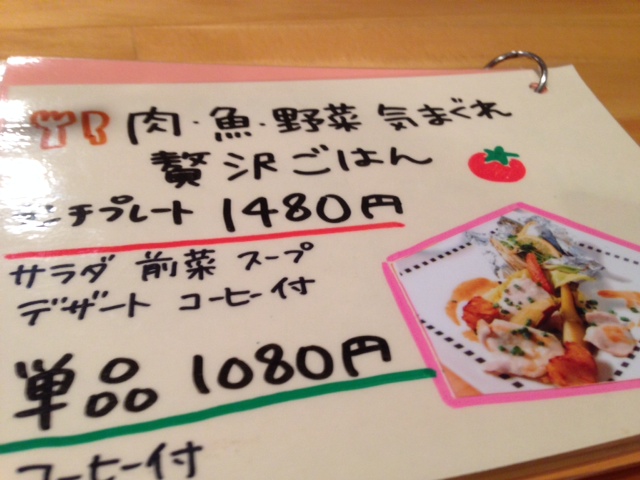 肉・魚・野菜 気まぐれ
贅沢ごはん
ランチプレート 1480円
サラダ 前菜 スープ
デザート コーヒー付
単品 1080円
コーヒー付